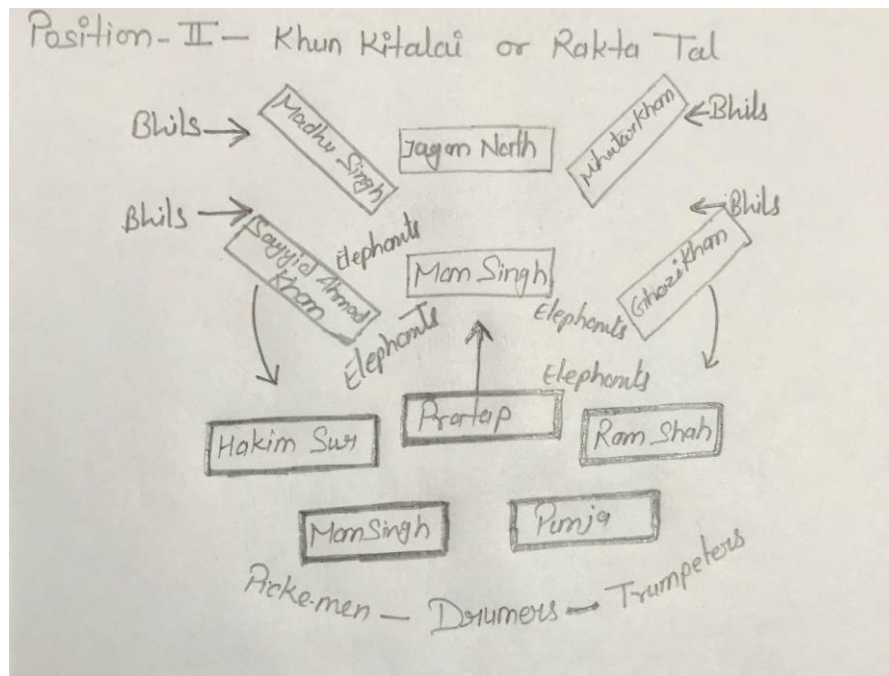 Position-II- Khun Kitalai or Rakta Tal
Bhils
Madhu Singh
Jagan North
Mihatar Khan
Bhils
Bhils
Sayyid Ahmad
Khan
Elephants
Man Singh
Ghazi Khan
Bhils
Elephants
Elephants
Elephants
Hakim Sur
Pratap
Ram Shah
Man Singh
Punja
Picke-men - Drumers - Trumpeters